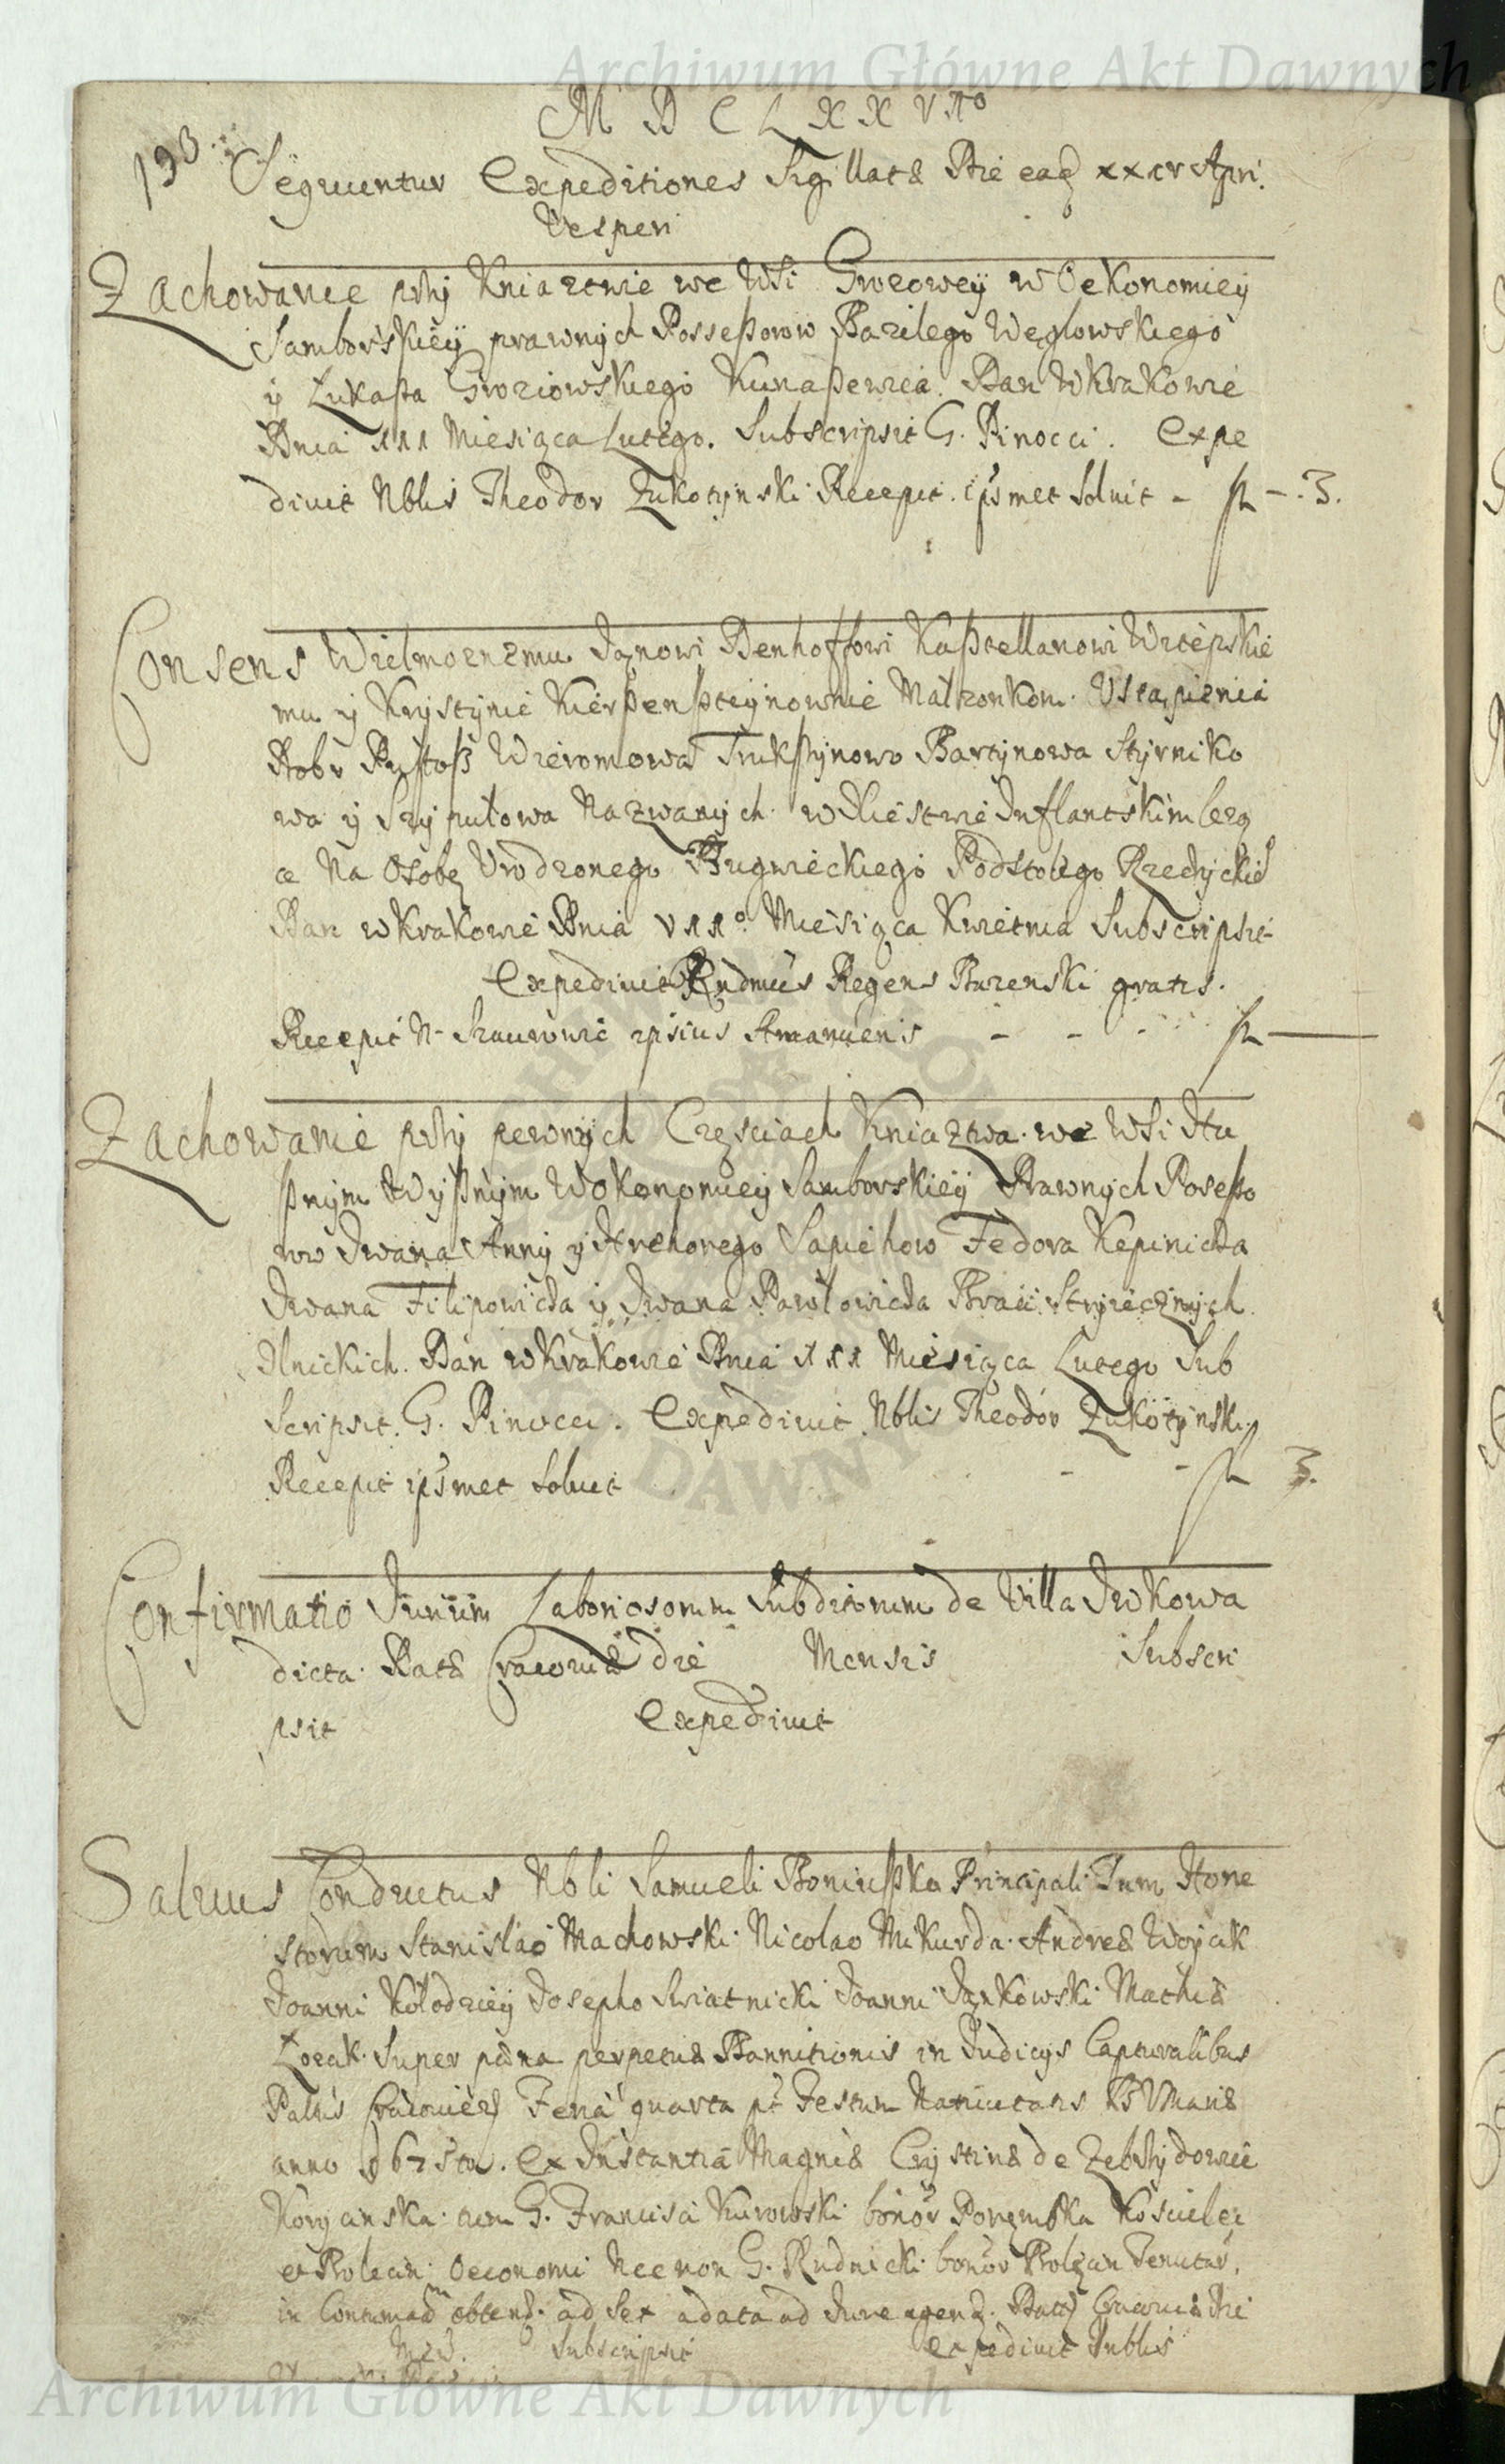 Archiwum Główne Akt Dawnych
M D C L X X V I to
193. Sequuntur Expeditiones Sigillatæ Die eadẽ Apri.
Vesperi
Zachowanie przÿ Kniaztwie we Wsi Grozoweÿ w Oekonomieÿ
Samborskieÿ prawnÿch Posseßorow Bazilego Węglowskiego
ÿ Łukaßa Groziowskiego Kunaßewica. Dan w Krakowie
Dnia III Miesiąca Lutego. Subscripsit G. Pinocci. Expe
divit Nblis Theodor Zukotÿnski Recepit. ipsmet Solvit - fl -. 3.
Consens Wielmoznemu Janowi Denhoffowi Kaßtellanowi Witepskie
mu ÿ Krystÿnie Kierßenßteÿnownie Małzonkom. Ustąpienia
Dobr Wieromowa Trukßÿnowo Bartÿnowa Stÿrniko
wa ÿ Szÿpułowa Nazwanÿch. w Xiestwie Inflantskim lezą
ce Na Osobę Vrodzonego Podstolego Rzeczÿckie
Dan w Krakowie Dnia VII° Miesiąca Kwietnia Subscripsit
Expedivit Rndmus Regens Buzenski gratis.
Recepit N. ipsius Amanuenis - - - fl —
Zachowanie przÿ pewnÿch Częsciach Kniaztwa we Wsi Hu
ßnÿm Wÿßnÿm W Okonomieÿ Samborskieÿ Prawnÿch Poseßo
row Iwana Annÿ ÿ Hrehorego Sapiehow Fedora Kepinicża
Iwana Filipowicża ÿ Iwana Pawłowicża Braci Strÿiecznÿch
Ilnickich. Dan w Krakowie Dnia III Miesiąca Lutego Sub
scripsit. G. Pinocci. Expedivit Nblis Theodor Zukotÿnski
Recepit ipsmet Solvit - - fl 3.
Confirmatio Jurium Laboriosorum Subditorum de Villa Iwkowa
dicta. Datæ Cracoviæ die Mensis Subscri
psit Expedivit
Salvus Conductus Nbli Samueli Principali Tum Hone
storum Stanislao Machowski Nicolao Mikurda. Andreæ Woÿcik
Joanni Kołodzieÿ Josepho Swiatnicki Joanni Jankowski Mathiæ
super pœna perpetuæ Bannitionis in Judicijs Capturalibus
Pallus Feria quarta pt Festum Nativitatis B V Mariæ
anno Ex Instantia Magnæ Crÿstinæ de Zebrzÿdowic
Korycinska. tum G. Francisci Kurowski bonor Porÿmbka Koscielec
et Oeconomi Necnon G. Rudnicki bonor Tenutar.
in Contumaciam obtent. ad Sex a data ad Jure agend. Dat Cracoviæ Die
Subscripsit Expedivit Nblis
Archiwum Główne Akt Dawnych